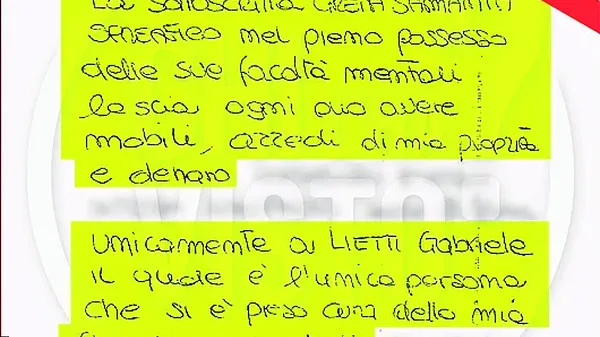 La sottoscritta
nel pieno possesso
delle sue facoltà mentali
lascia ogni suo avere
mobili, arredi di mia proprietà
e denaro
VISTO
UNICAMENTE a LIETTI Gabriele
il quale è l'unica persona
che si è preso cura della mia